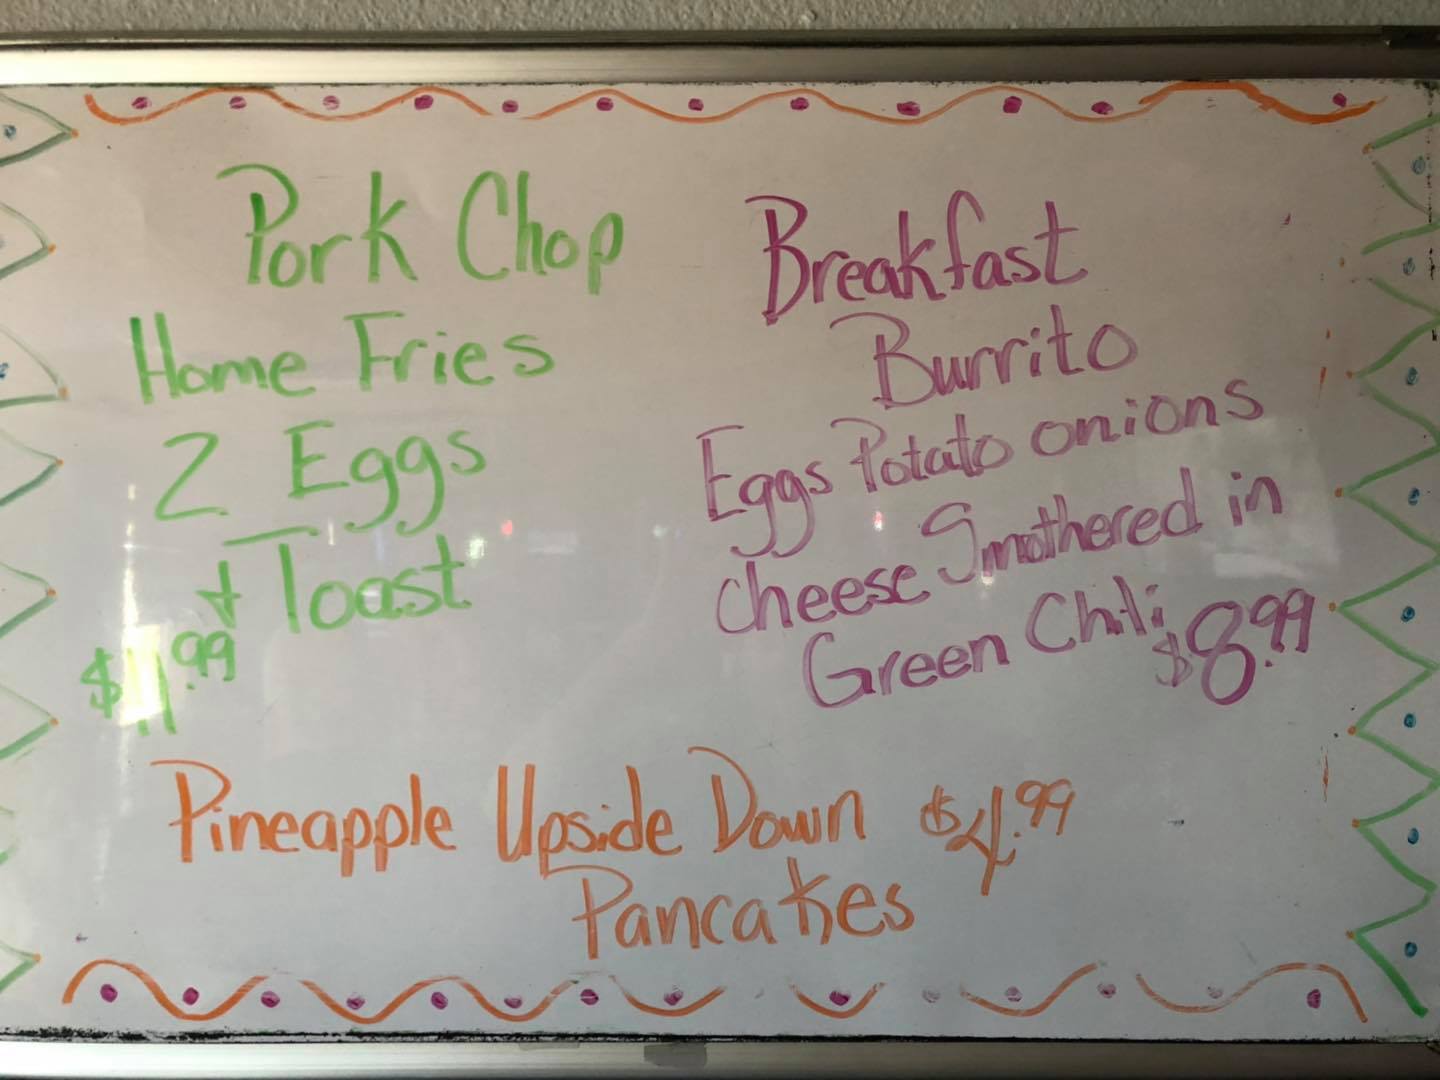 Pork Chop
Home Fries
2 Eggs
+ Toast
$11.99
Breakfast
Burrito
Eggs Potato onions
cheese Smothered in
Green Chili $8.99
Pineapple Upside Down $4.99
Pancakes